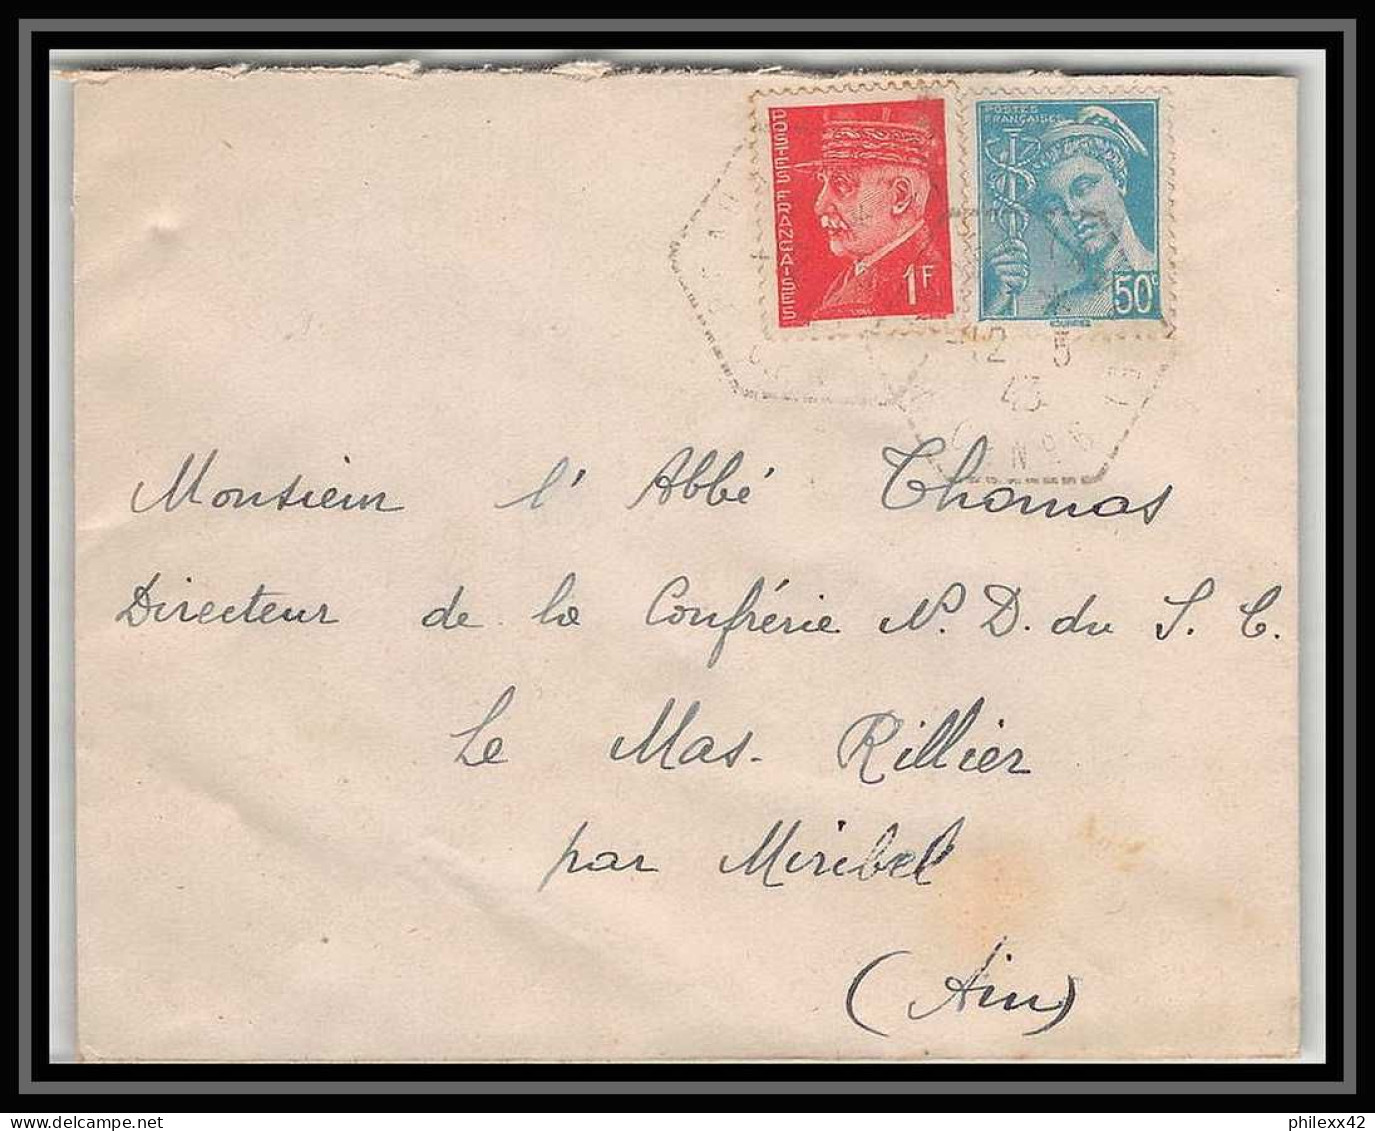 POSTES FRANÇAISES
1F
POSTES
FRANÇAISES
50c
12 5
43
Monsieur l'Abbé Thomas
Directeur de la Confrérie N. D. du S. C.
Le Mas-Rillier
par Miribel
(Ain)
philexx42